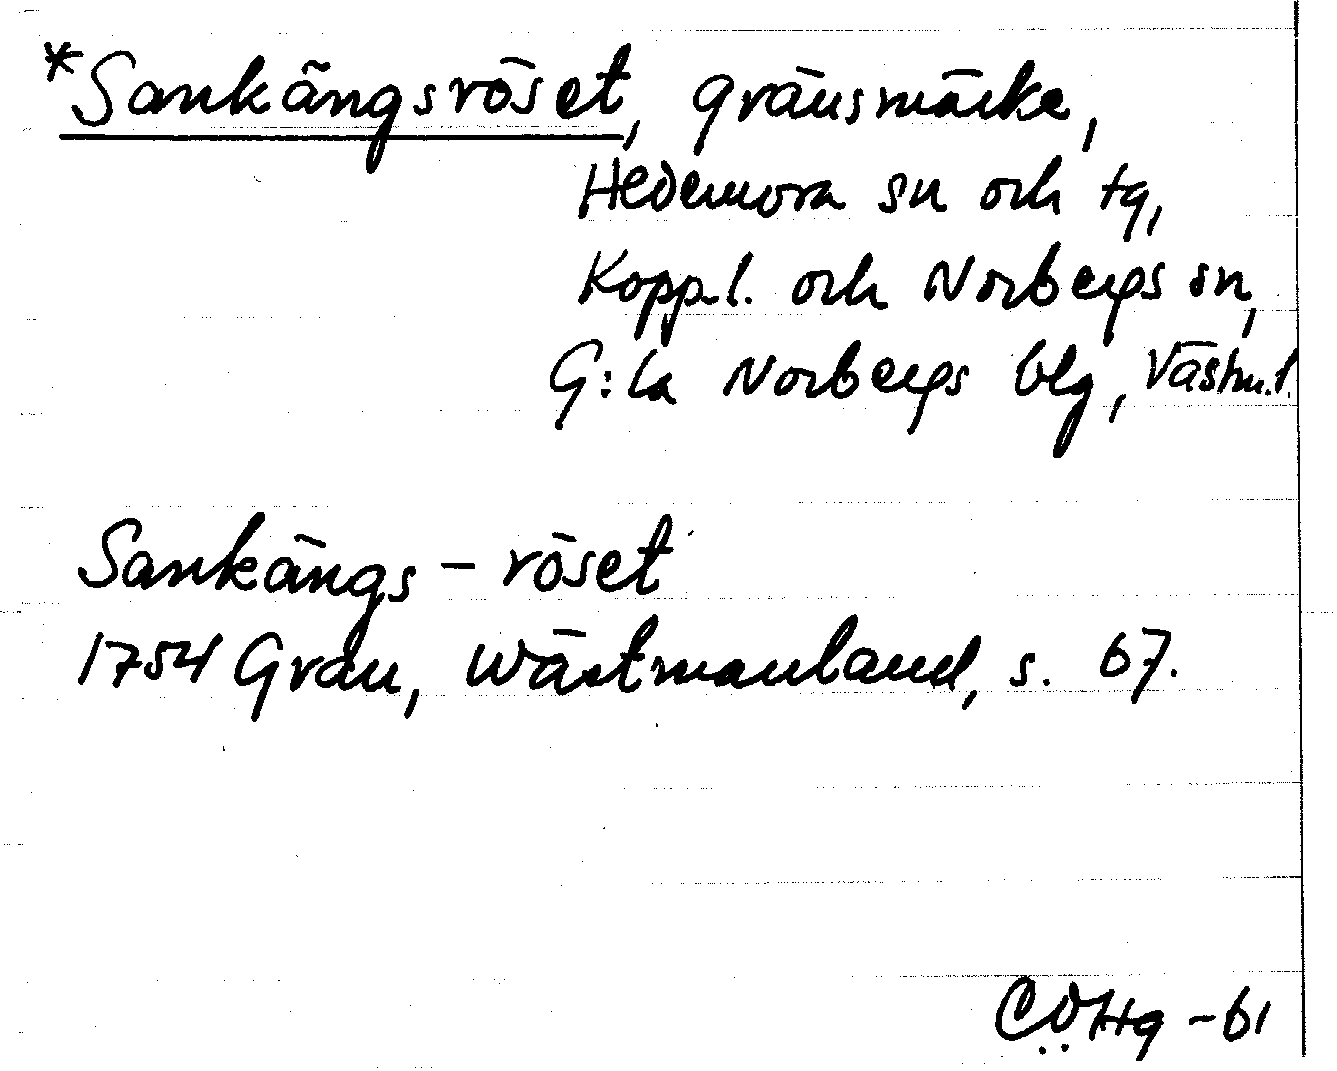 *Sankängsröset, gränsmärke,
Hedemora sn och tg,
Kopp.l. och Norbergs sn,
G:la Norbergs blg, Västm.l.
Sankängs – röset
1754 Grau, Wästmanland, s. 67.
CÖHg -61